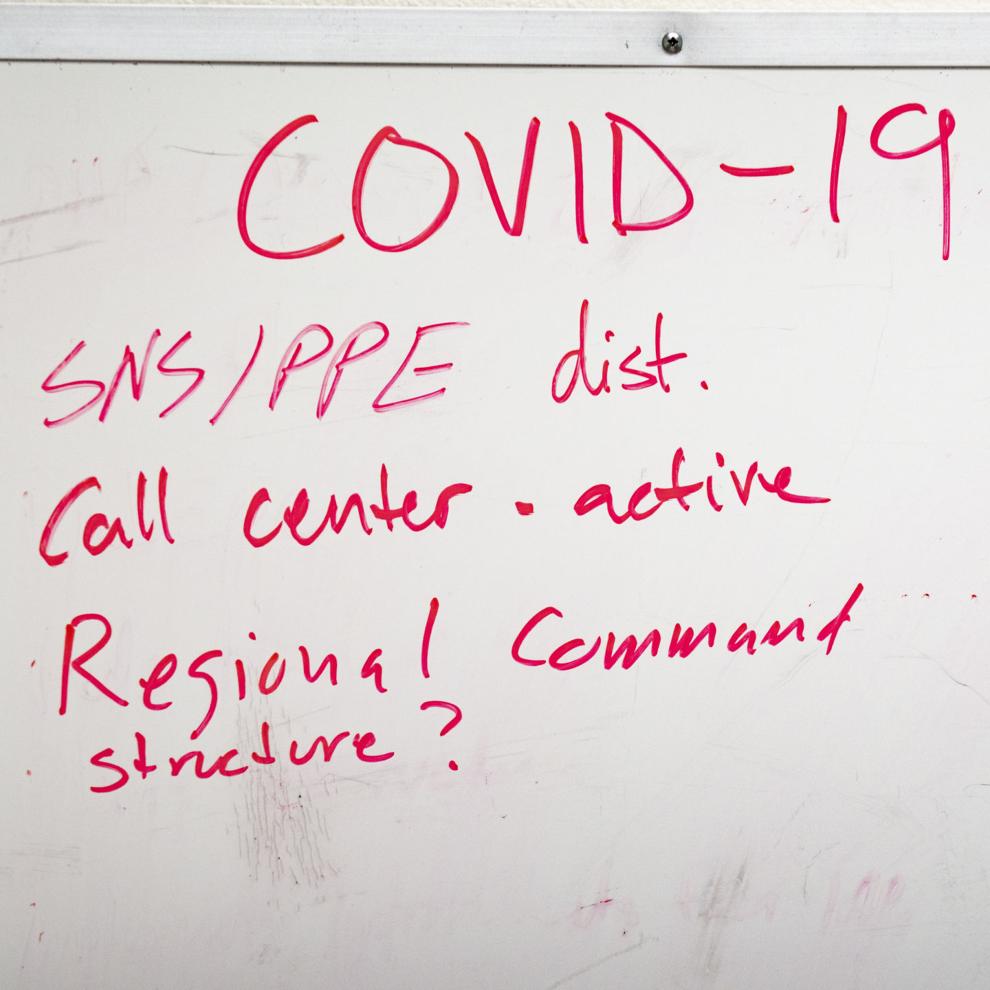 COVID-19
SNS/PPE dist.
Call center . active
Regional Command
structure?